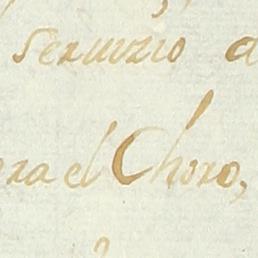 seruizio a
ra el Choro,